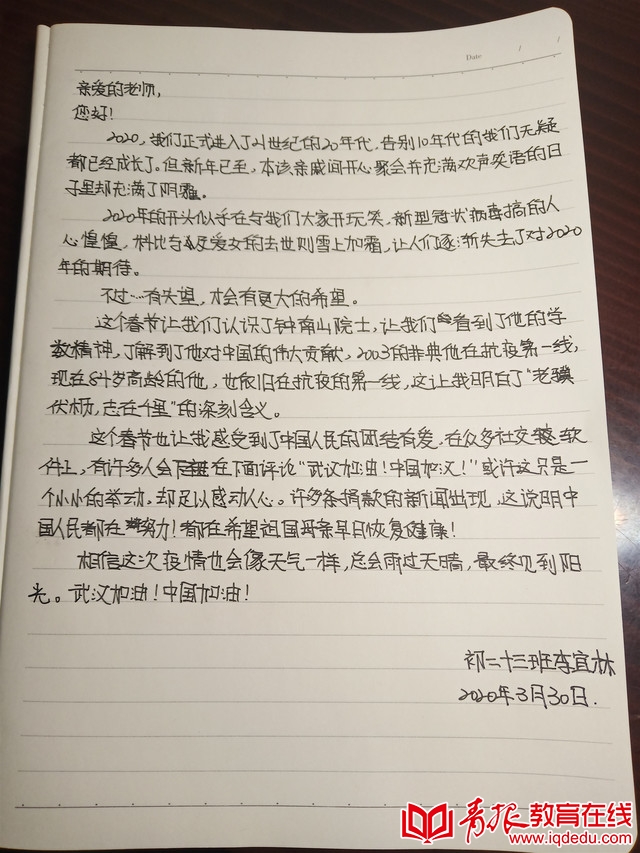 Date / /
亲爱的老师,
您好!
2020,我们正式进入了21世纪的20年代,告别10年代的我们无疑
都已经成长了。但新年已至,本该亲戚间开心聚会并充满欢声笑语的日
子里却充满了阴霾。
2020年的开头似乎在与我们大家开玩笑,新型冠状病毒搞的人
心惶惶,科比与爱女的去世则雪上加霜,让人们逐渐失去了对2020
年的期待。
不过…有失望,才会有更大的希望。
这个春节让我们认识了钟南山院士,让我们看到了他的学
数精神,了解到了他对中国的伟大贡献,2003的非典他在抗疫第一线,
现在84岁高龄的他,也依旧在抗疫的第一线,这让我明白了“老骥
伏枥,志在千里”的深刻含义。
这个春节也让我感受到了中国人民的团结有爱,在众多社交软
件上,有许多人会在下面评论“武汉加油!中国加汉!”或许这只是一
个小小的举动,却足以感动人心。许多条捐款的新闻出现,这说明中
国人民都在努力!都在希望祖国母亲早日恢复健康!
相信这次疫情也会像天气一样,总会雨过天晴,最终见到阳
光。武汉加油!中国加油!
初二十三班李宜林
2020年3月30日.
青报教育在线
www.iqdedu.com